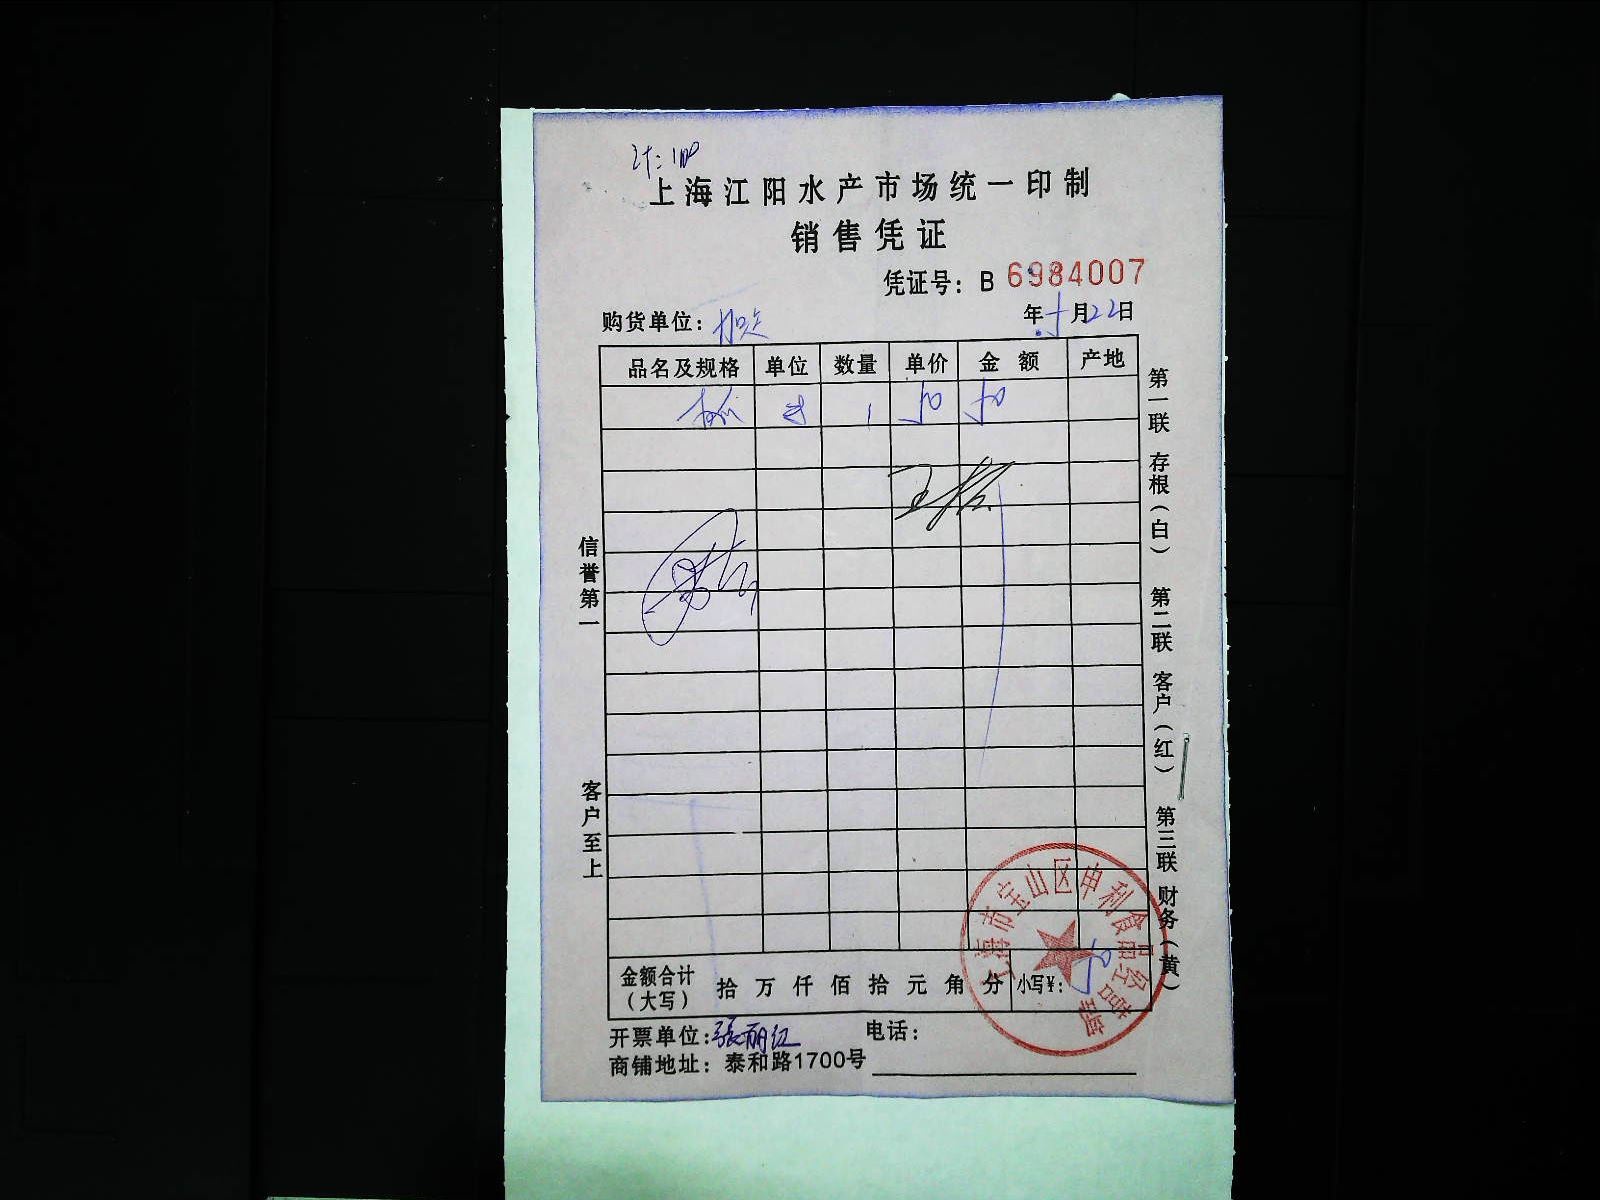 计:100
上海江阳水产市场统一印制
销售凭证
凭证号: B 6984007
购货单位:
年5月22日
品名及规格 单位 数量 单价 金额 产地
1 50 50
王
信誉第一
客户至上
第一联 存根(白) 第二联 客户(红) 第三联 财务(黄)
上海市宝山区申利食品经营部
金额合计(大写) 拾 万 仟 佰 拾 元 角 分 小写¥: 50
开票单位:张丽红 电话:
商铺地址: 泰和路1700号